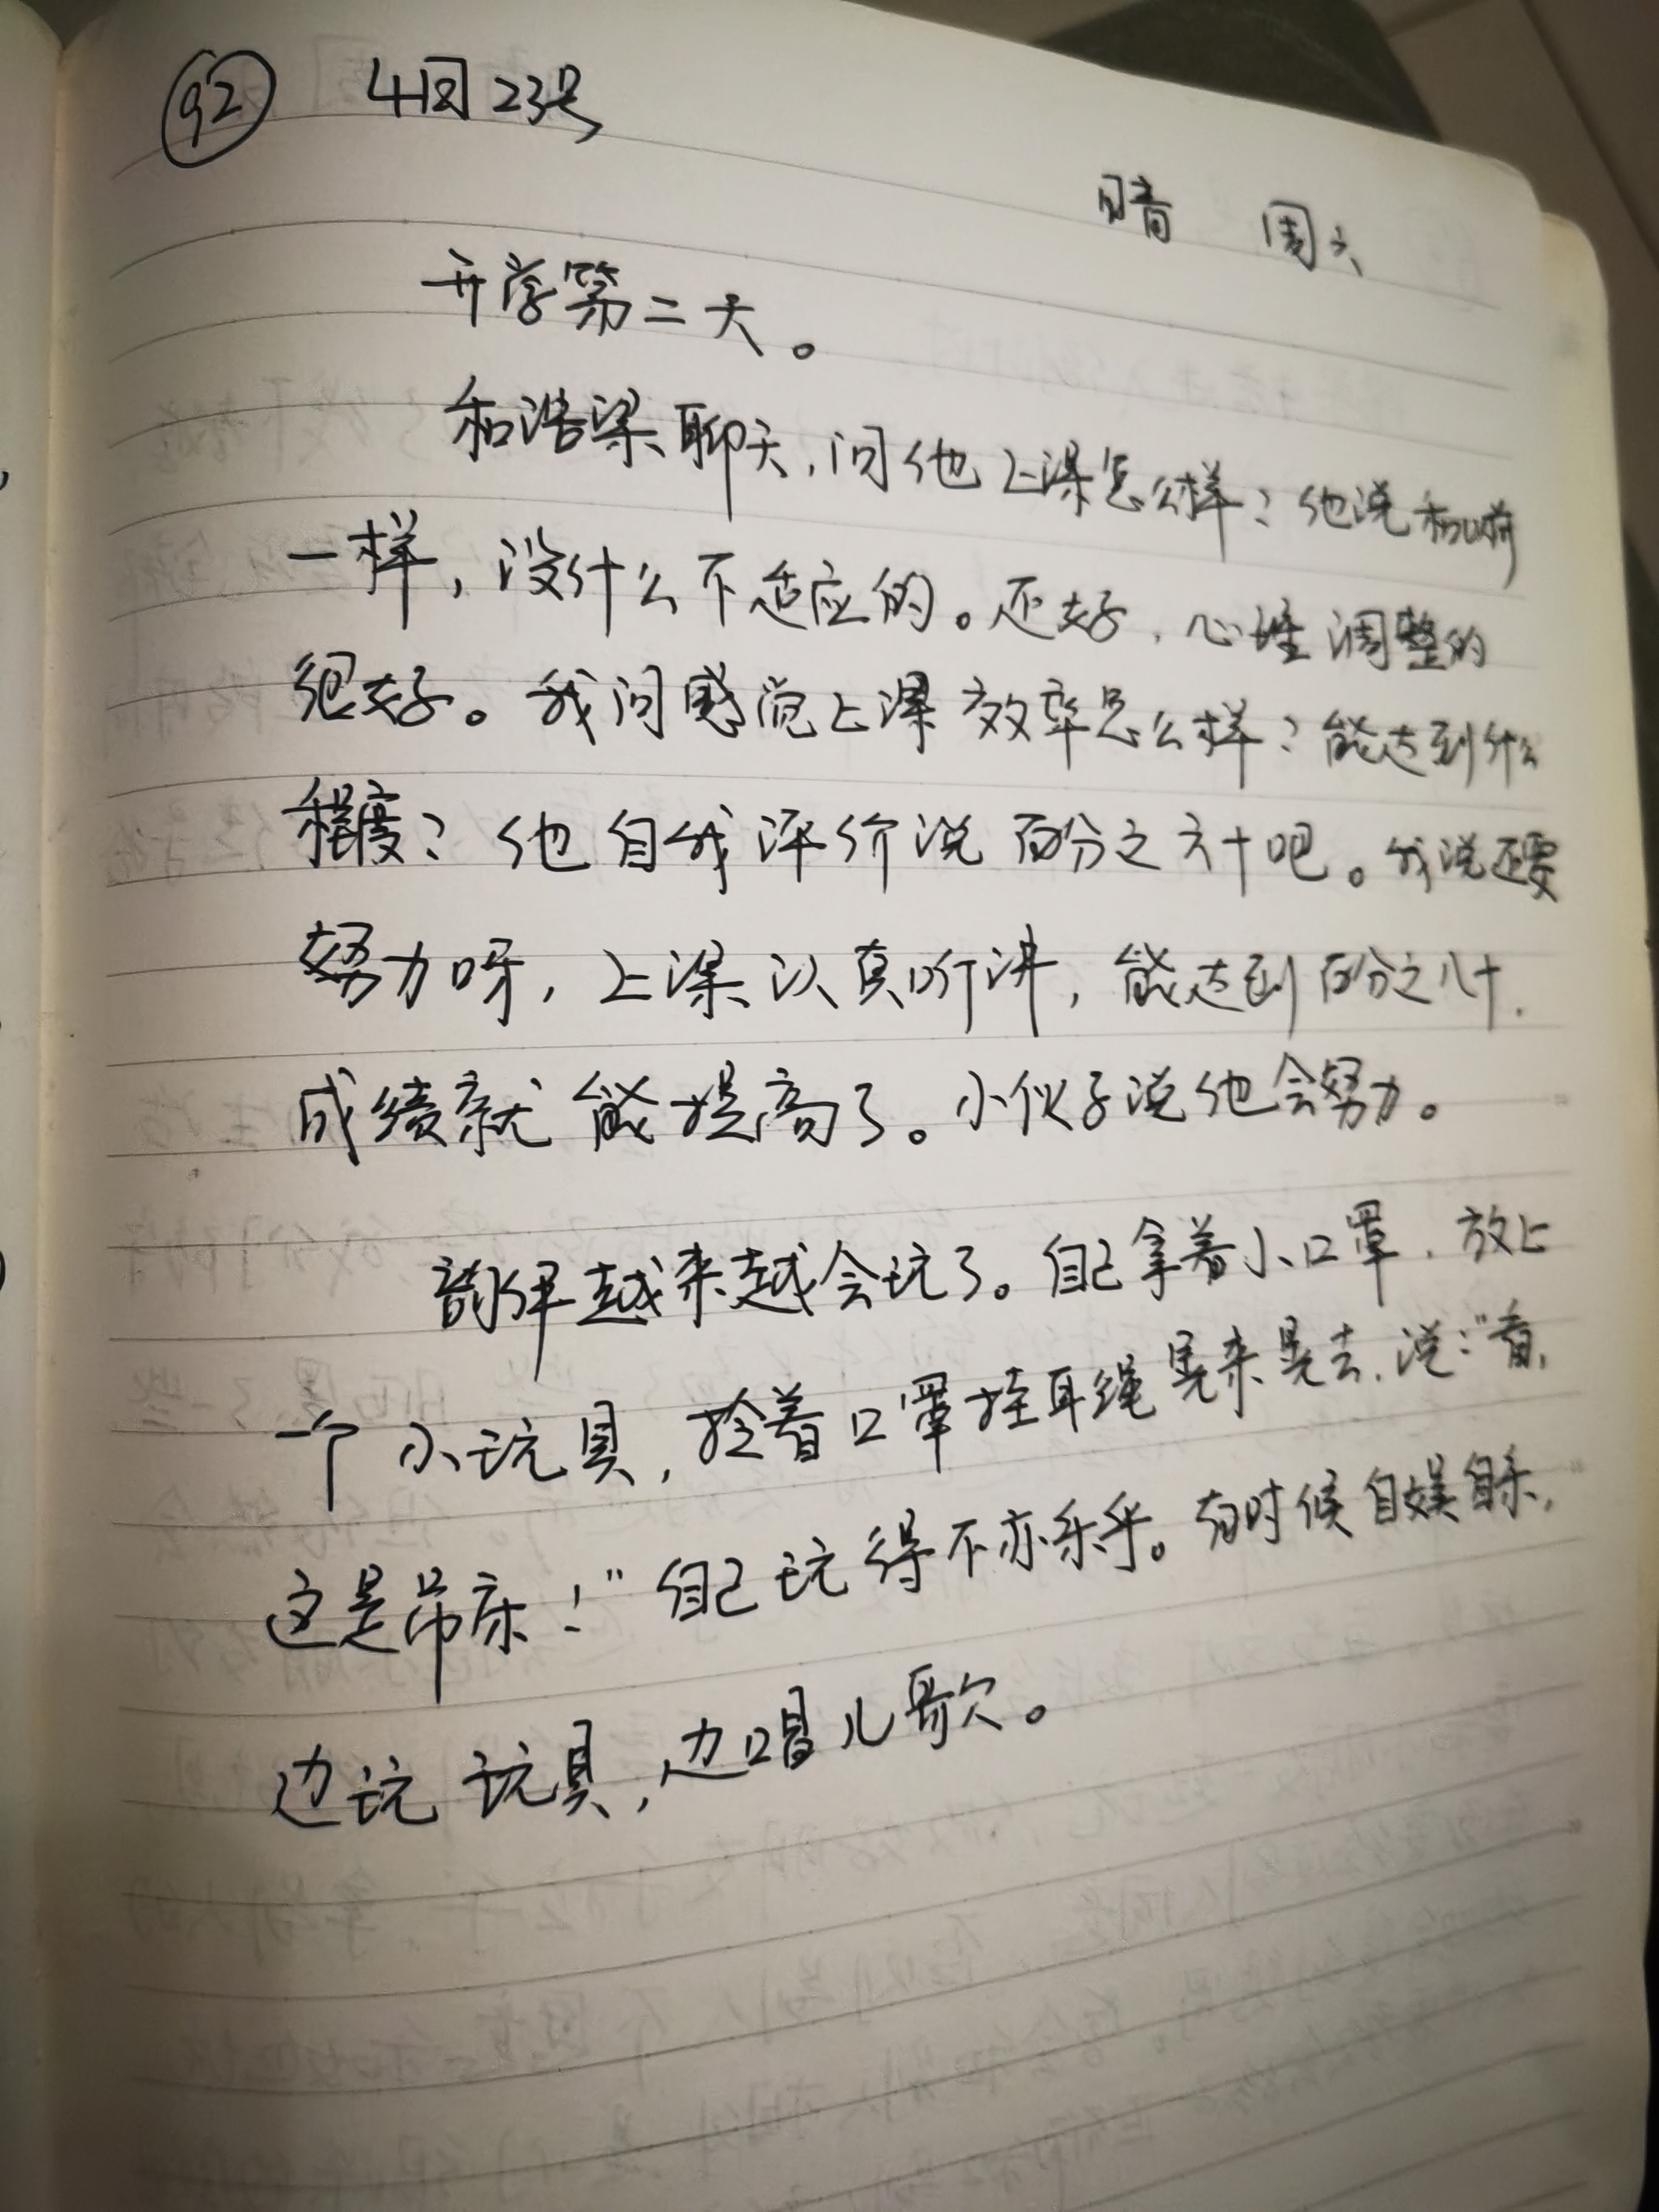 92 4月23号
晴 周六
开学第二天。
和浩梁聊天,问他上课怎么样?他说和以前
一样,没什么不适应的。还好,心理调整的
很好。我问感觉上课效率怎么样?能达到什么
程度?他自我评价说百分之六十吧。我说还要
努力呀,上课认真听讲,能达到百分之八十,
成绩就能提高了。小伙子说他会努力。
韵伊越来越会玩了。自己拿着小口罩,放上
一个小玩具,拎着口罩挂耳绳晃来晃去,说:"看,
这是吊床!"自己玩得不亦乐乎。有时候自娱自乐,
边玩玩具,边唱儿歌。